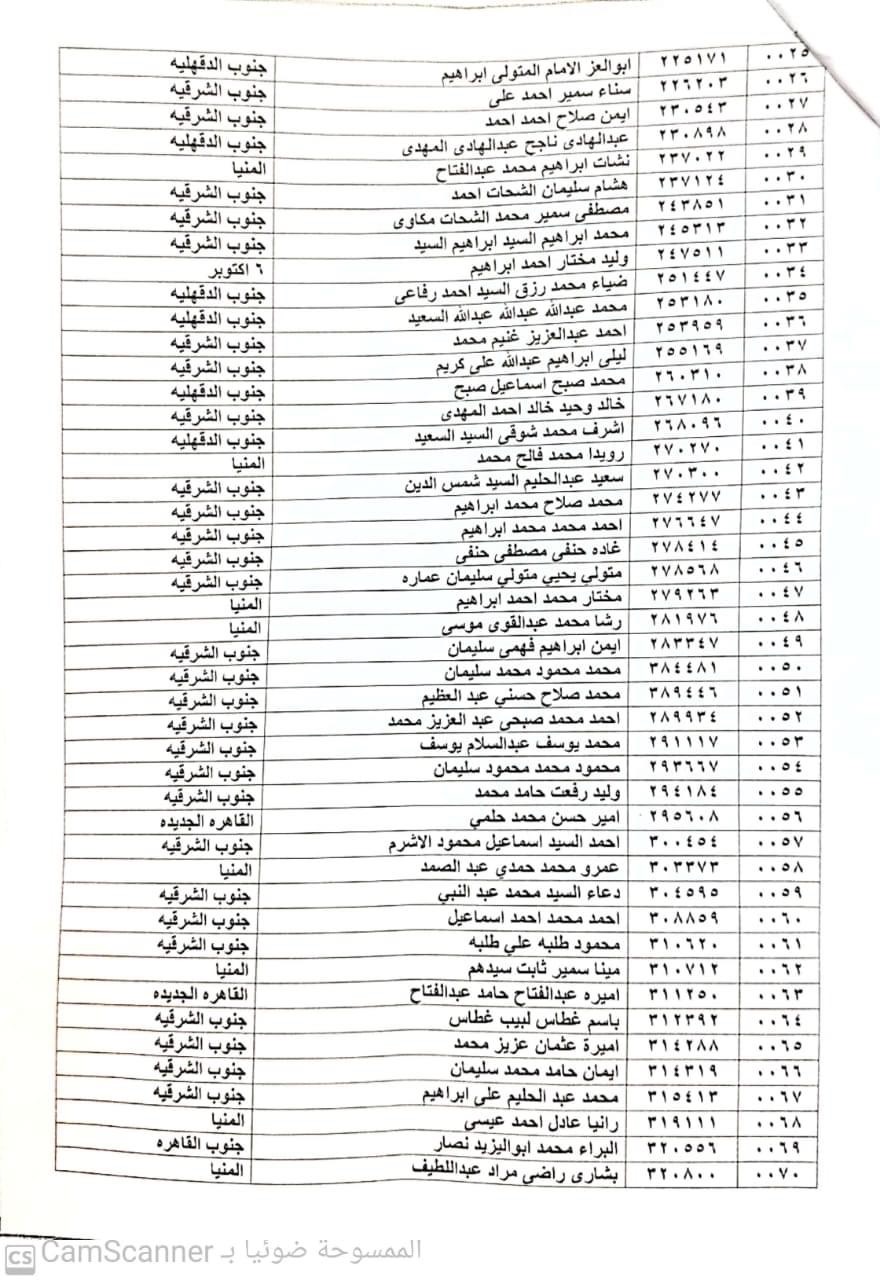 ٠٠٢٥ ٢٢٥١٧١ ابوالعز الامام المتولى ابراهيم جنوب الدقهليه
٠٠٢٦ ٢٢٦٢٠٣ سناء سمير احمد على جنوب الشرقيه
٠٠٢٧ ٢٣٠٥٤٣ ايمن صلاح احمد احمد جنوب الشرقيه
٠٠٢٨ ٢٣٠٨٩٨ عبدالهادى ناجح عبدالهادى المهدى جنوب الدقهليه
٠٠٢٩ ٢٣٧٠٢٢ نشات ابراهيم محمد عبدالفتاح المنيا
٠٠٣٠ ٢٣٧١٢٤ هشام سليمان الشحات احمد جنوب الشرقيه
٠٠٣١ ٢٤٣٨٥١ مصطفى سمير محمد الشحات مكاوى جنوب الشرقيه
٠٠٣٢ ٢٤٥٣١٣ محمد ابراهيم السيد ابراهيم السيد جنوب الشرقيه
٠٠٣٣ ٢٤٧٥١١ وليد مختار احمد ابراهيم ٦ اكتوبر
٠٠٣٤ ٢٥١٤٤٧ ضياء محمد رزق السيد احمد رفاعى جنوب الدقهليه
٠٠٣٥ ٢٥٣١٨٠ محمد عبدالله عبدالله عبدالله السعيد جنوب الدقهليه
٠٠٣٦ ٢٥٣٩٥٩ احمد عبدالعزيز غنيم محمد جنوب الشرقيه
٠٠٣٧ ٢٥٥١٦٩ ليلى ابراهيم عبدالله على كريم جنوب الشرقيه
٠٠٣٨ ٢٦٠٣١٠ محمد صبح اسماعيل صبح جنوب الدقهليه
٠٠٣٩ ٢٦٧١٨٠ خالد وحيد خالد احمد المهدى جنوب الشرقيه
٠٠٤٠ ٢٦٨٠٩٦ اشرف محمد شوقى السيد السعيد جنوب الدقهليه
٠٠٤١ ٢٧٠٢٧٠ رويدا محمد فالح محمد المنيا
٠٠٤٢ ٢٧٠٣٠٠ سعيد عبدالحليم السيد شمس الدين جنوب الشرقيه
٠٠٤٣ ٢٧٤٢٧٧ محمد صلاح محمد ابراهيم جنوب الشرقيه
٠٠٤٤ ٢٧٦٦٤٧ احمد محمد محمد ابراهيم جنوب الشرقيه
٠٠٤٥ ٢٧٨٤١٤ غاده حنفى مصطفى حنفى جنوب الشرقيه
٠٠٤٦ ٢٧٨٥٦٨ متولي يحيي متولي سليمان عماره جنوب الشرقيه
٠٠٤٧ ٢٧٩٢٦٣ مختار محمد احمد ابراهيم المنيا
٠٠٤٨ ٢٨١٩٧٦ رشا محمد عبدالقوى موسى المنيا
٠٠٤٩ ٢٨٣٣٤٧ ايمن ابراهيم فهمى سليمان جنوب الشرقيه
٠٠٥٠ ٣٨٤٤٨١ محمد محمود محمد سليمان جنوب الشرقيه
٠٠٥١ ٣٨٩٤٤٦ محمد صلاح حسني عبد العظيم جنوب الشرقيه
٠٠٥٢ ٢٨٩٩٣٤ احمد محمد صبحى عبد العزيز محمد جنوب الشرقيه
٠٠٥٣ ٢٩١١١٧ محمد يوسف عبدالسلام يوسف جنوب الشرقيه
٠٠٥٤ ٢٩٣٦٦٧ محمود محمد محمود سليمان جنوب الشرقيه
٠٠٥٥ ٢٩٤١٨٤ وليد رفعت حامد محمد جنوب الشرقيه
٠٠٥٦ ٢٩٥٦٠٨ امير حسن محمد حلمي القاهره الجديده
٠٠٥٧ ٣٠٠٤٥٤ احمد السيد اسماعيل محمود الاشرم جنوب الشرقيه
٠٠٥٨ ٣٠٣٣٧٣ عمرو محمد حمدي عبد الصمد المنيا
٠٠٥٩ ٣٠٤٥٩٥ دعاء السيد محمد عبد النبي جنوب الشرقيه
٠٠٦٠ ٣٠٨٨٥٩ احمد محمد احمد اسماعيل جنوب الشرقيه
٠٠٦١ ٣١٠٦٢٠ محمود طلبه علي طلبه جنوب الشرقيه
٠٠٦٢ ٣١٠٧١٢ مينا سمير ثابت سيدهم المنيا
٠٠٦٣ ٣١١٢٥٠ اميره عبدالفتاح حامد عبدالفتاح القاهره الجديده
٠٠٦٤ ٣١٢٣٩٢ باسم غطاس لبيب غطاس جنوب الشرقيه
٠٠٦٥ ٣١٤٢٨٨ اميرة عثمان عزيز محمد جنوب الشرقيه
٠٠٦٦ ٣١٤٣١٩ ايمان حامد محمد سليمان جنوب الشرقيه
٠٠٦٧ ٣١٥٤١٣ محمد عبد الحليم على ابراهيم جنوب الشرقيه
٠٠٦٨ ٣١٩١١١ رانيا عادل احمد عيسى المنيا
٠٠٦٩ ٣٢٠٥٥٦ البراء محمد ابواليزيد نصار جنوب القاهره
٠٠٧٠ ٣٢٠٨٠٠ بشارى راضي مراد عبداللطيف المنيا
CS CamScanner الممسوحة ضوئيا بـ